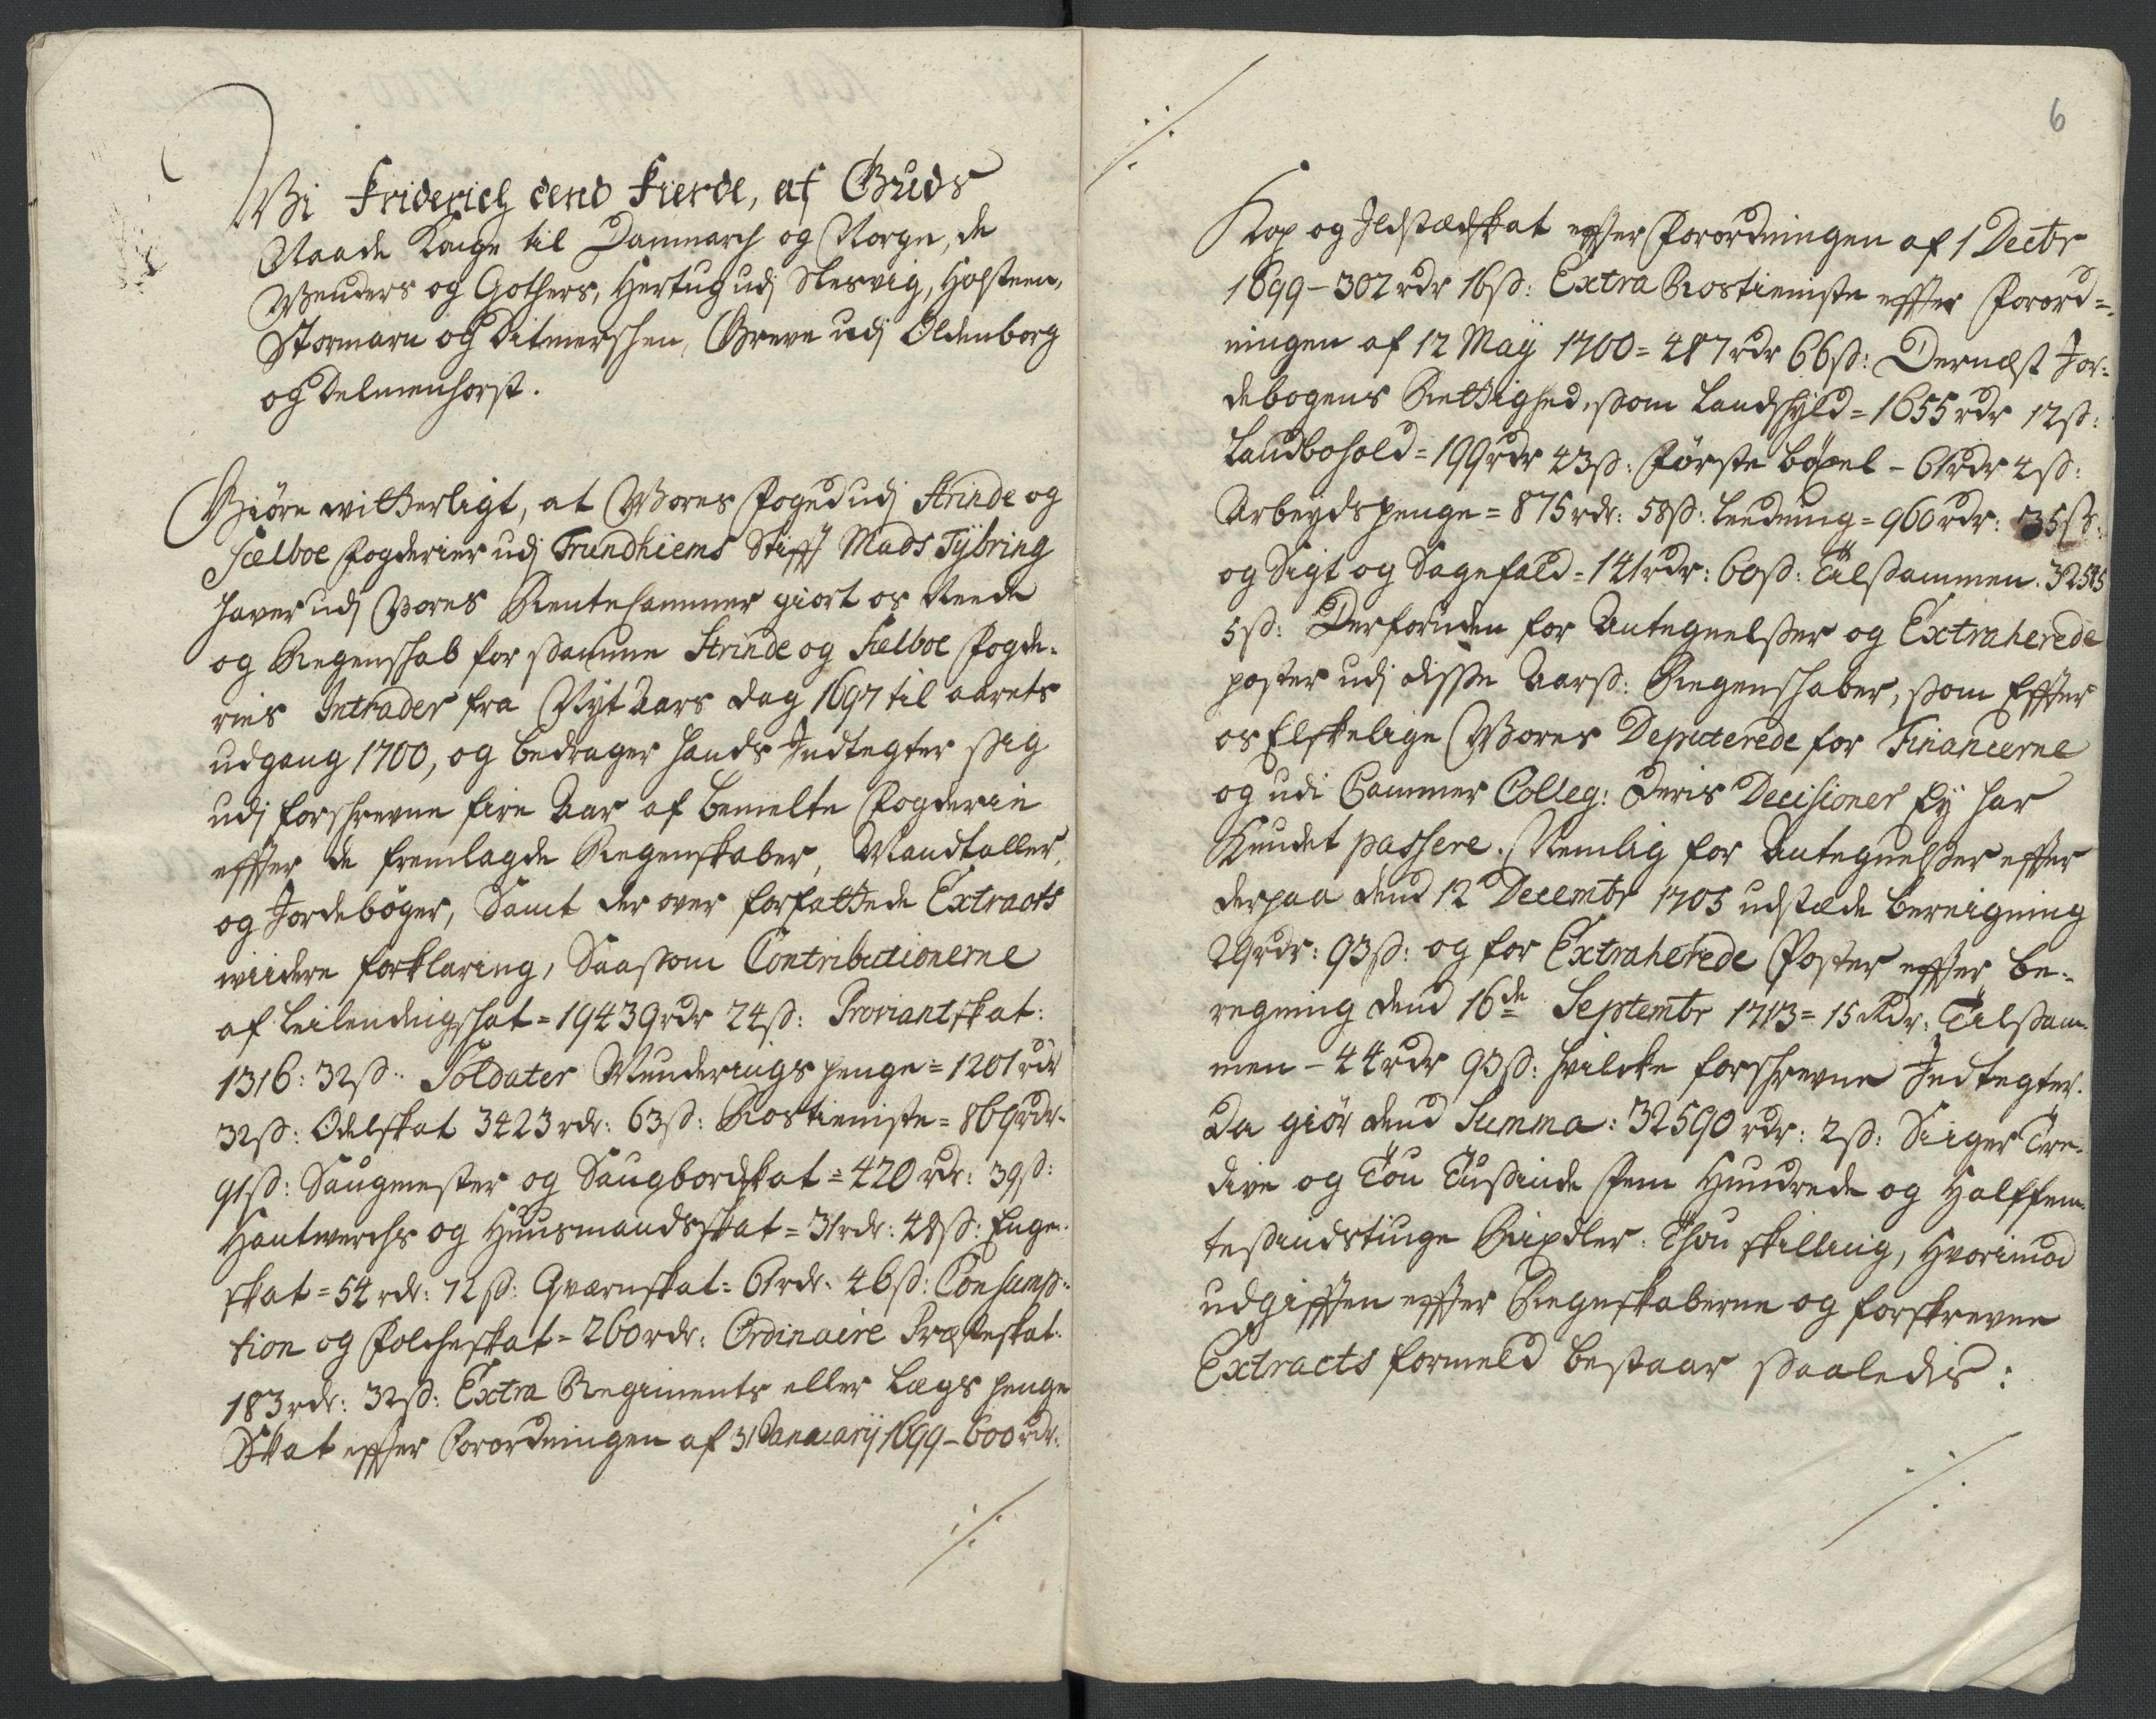 Wi Friderich dend Fierde, af Guds
Naade Konge til Danmarch og Norge, de
Wenders og Gothers, Hertug udj Slesvig, Holsteen,
Stormarn og Ditmerschen, Greve udj Oldenborg
og Delmenhorst.
Giöre witterligt, at Wores Foged udj Strinde og
Sælboe Fogderier udj Trundhiems Stifft Mads Tÿbring
haver udj Vores Rentekammer giort os Reede
og Regenschab for samme Strinde og Sælboe Fogde-
ries Intrader fra Nÿt Aars dag 1697 til aarets
udgang 1700, og bedrager hands Indtegter sig
udj forschrevne fire Aar af bemelte Fogderie
effter de fremlagde Regenskaber, Mandtaller,
og Jordebøger, Samt der over forfattede Extracts
wiidere forklaring, Saasom Contributionerne
af Leilendingschat = 19439 rdr 24 ß: Proviantskat:
1316: 32 ß: Soldater Munderings penge = 1201 rdr
32 ß: Odelskat 3423 rdr: 63 ß: Rostieniste = 869 rdr.
91 ß: Saugmester og Saugbordskat = 420 rdr: 39 ß:
Hantwerchs og Huusmandsskat = 31 rdr: 48 ß: Enge-
skat = 54 rdr: 72 ß: Qværnskat = 61 rdr: 46 ß: Consump-
tion og Folcheskat = 260 rdr: Ordinaire Præsteskat:
183 rdr: 32 ß: Extra Regiments eller Lægs penge
Skat effter Forordningen af 31 Januarij 1699 - 600 rdr:
6
Kop og Ildstædskat effter Forordningen af 1 Decbr
1699 - 302 rdr 16 ß: Extra Rostieniste effter Forord-
ningen af 12 Maÿ 1700 = 487 rdr 66 ß: Dernæst Jor-
debogens Rettighed, som Landschÿld = 1655 rdr 12 ß:
Landbohold = 199 rdr 43 ß: Første bøxel - 61 rdr 4 ß:
Arbeydspenge = 875 rdr: 58 ß: Leeding = 960 rdr: 35 ß:
og Sigt og Sagefald = 141 rdr: 60 ß: Tilsammen. 32545
5 ß: Derforuden for Antegnelsser og Extraherede
poster udj disse Aars: Regenschaber, som Effter
os Elskelige Wores Deputerede for Financerne
og udi Cammer Colleg: Deris Decisioner Eÿ har
Kundet passere. Nemlig for Antegnelsser effter
derpaa dend 12 Decembr 1705 udstæde bereigning
29 rdr: 93 ß: og for Extraherede Poster effter be-
regning dend 16de Septembr 1713 = 15 Rdr: Tilsam-
men - 44 rdr 93 ß: hvilcke forschrevne Indtegter.
Da giör dend Summa: 32590 rdr: 2 ß: Siiger Tre-
dive og Tou Tusinde Fem Hundrede og Halffem-
tesindstiuge Rixdler: Thou skilling, Hvorimod
udgifften effter Regnskaberne og forskrevne
Extracts formeld bestaar saaledis: